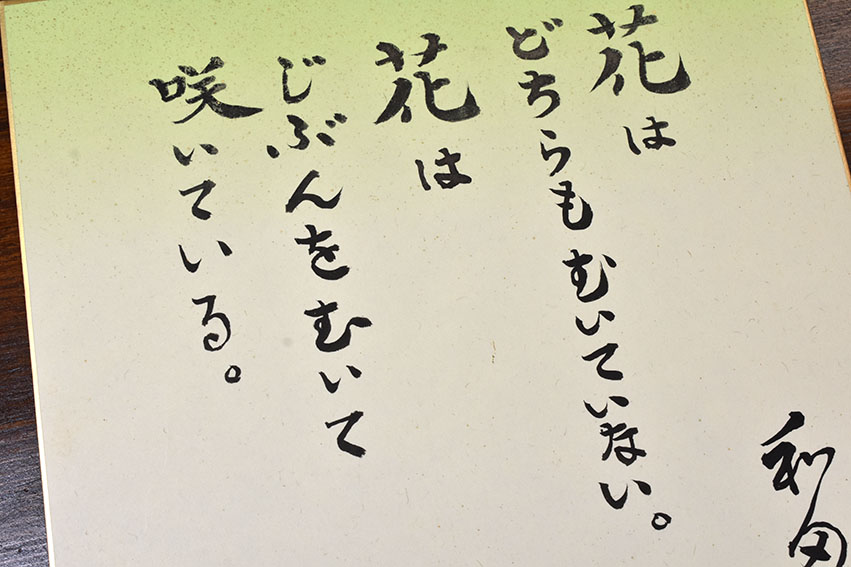 花は
どちらもむいていない。
花は
じぶんをむいて
咲いている。
和田